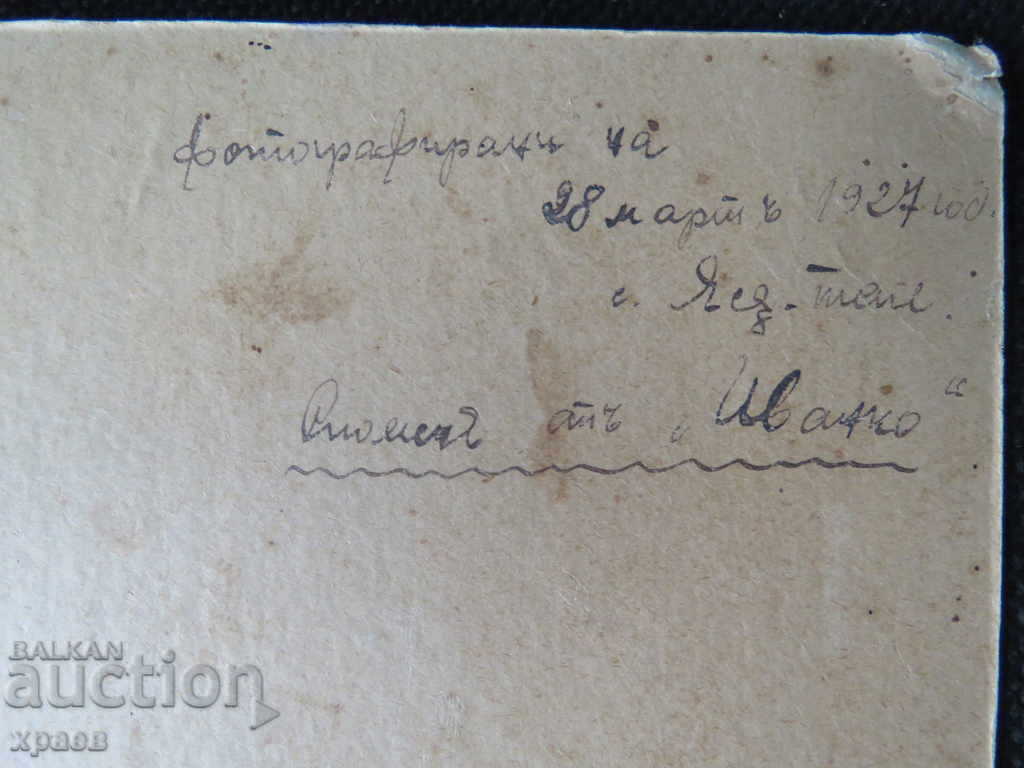 фотографирани на
28 мартъ 1927 год.
с.
Споменъ отъ „Иванко“
BALKAN
auction
храов